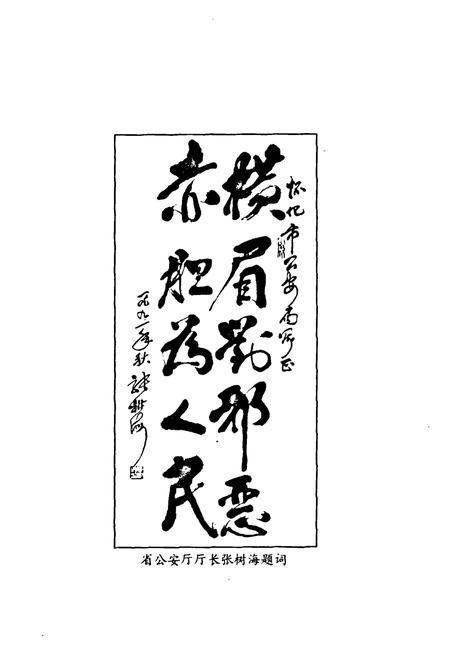 怀化市公安局斧正
横眉对邪恶
赤胆为人民
一九九一年秋 张树海
省公安厅厅长张树海题词